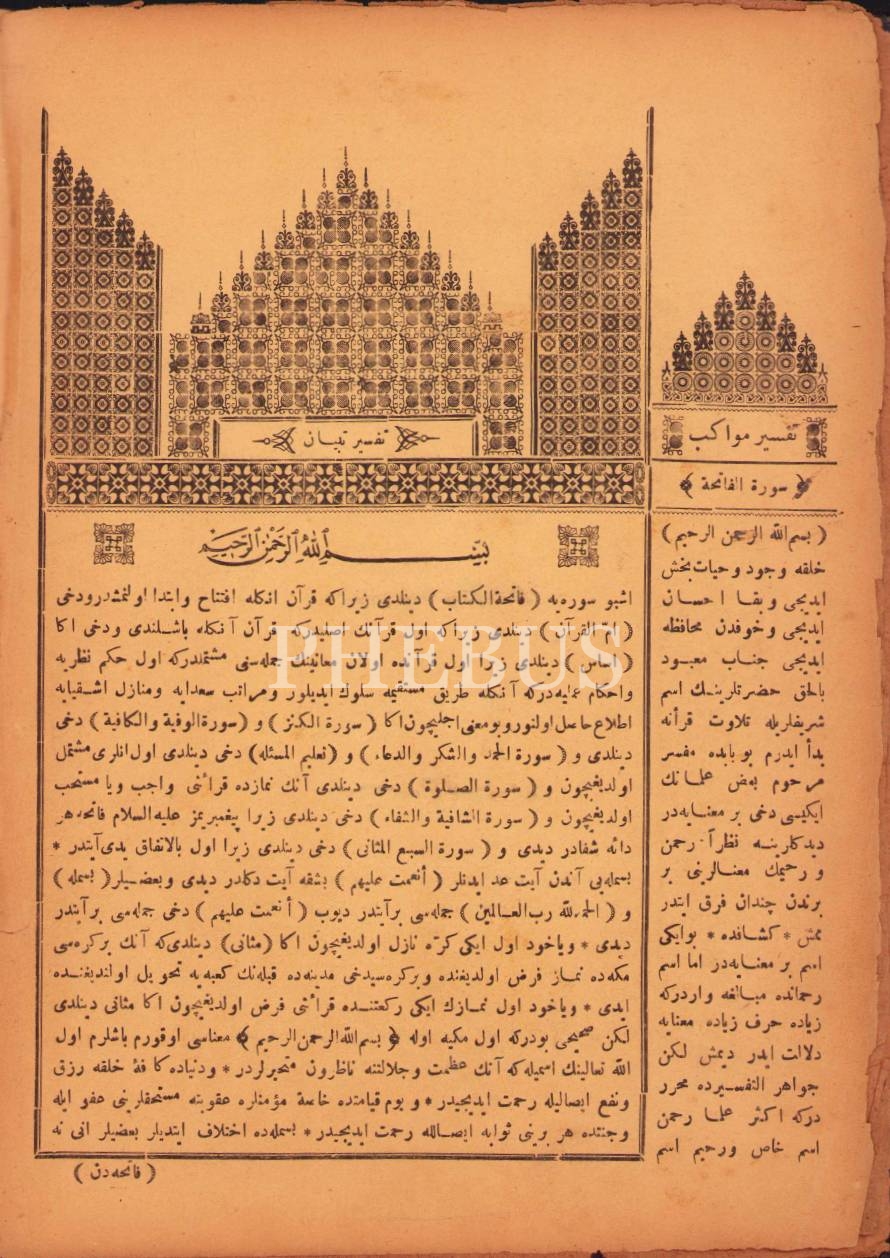 تفسیر تبیان
بسم الله الرحمن الرحیم
اشبو سوره‌یه ( فاتحة الکتاب ) دینلدی زیراکه قرآن انکله افتتاح وابتدا اولنمشدر ودخی
( ام القرآن ) دینلدی زیراکه اول قرآنك اصلیدرکه قرآن آنکله باشلندی ودخی اکا
( اساس ) دینلدی زیرا اول قرآنده اولان معانینك جمله‌سنی مشتملدرکه اول حکم نظریه
واحکام عملیه‌درکه آنکله طریق مستقیمه سلوك ایدیلور ومراتب سعدایه ومنازل اشقیایه
اطلاع حاصل اولنور وبو معنی اجلیچون اکا ( سورة الکنز ) و ( سورة الوفیة والکافیة ) دخی
دینلدی و ( سورة الحمد والشکر والدعاء ) و ( تعلیم المسئله ) دخی دینلدی اول انلری مشتمل
اولدیغیچون و ( سورة الصلوة ) دخی دینلدی آنك نمازده قرائتی واجب ویا مستحب
اولدیغیچون و ( سورة الشافیة والشفاء ) دخی دینلدی زیرا پیغمبریمز علیه السلام فاتحه هر
دائه شفادر دیدی و ( سورة السبع المثانی ) دخی دینلدی زیرا اول بالاتفاق یدی آیتدر *
بسمله‌یی آندن آیت عد ایدنلر ( أنعمت علیهم ) بشقه آیت دکلدر دیدی وبعضیلر ( بسمله )
و ( الحمد لله رب العالمین ) جمله‌سی بر آیتدر دیوب ( أنعمت علیهم ) دخی جمله‌سی بر آیتدر
دیدی * ویاخود اول ایکی کره نازل اولدیغیچون اکا ( مثانی ) دینلدی‌که آنك بر کره‌سی
مکه‌ده نماز فرض اولدیغنده وبر کره‌سیدخی مدینه‌ده قبله‌نك کعبه‌یه تحویل اولندیغنده
ایدی * ویاخود اول نمازك ایکی رکعتنده قرائتی فرض اولدیغیچون اکا مثانی دینلدی
لکن صحیحی بودرکه اول مکیه اوله ﴿ بسم الله الرحمن الرحیم ﴾ معناسی اوقورم باشلرم اول
الله تعالینك اسمیله که آنك عظمت وجلالتنه ناظرون متحیرلردر * ودنیاده کافهٔ خلقه رزق
ونفع ایصالیله رحمت ایدیجیدر * ویوم قیامتده خاصة مؤمنلره عقوبته مستحقلرینی عفو ایله
وجنتده هر برینی ثوابه ایصالله رحمت ایدیجیدر * بسمله‌ده اختلاف ایتدیلر بعضیلر انی نه
( فاتحه‌دن )
تفسیر مواکب
﴿ سورة الفاتحة ﴾
( بسم الله الرحمن الرحیم )
خلقه وجود وحیات بخش
ایدیجی وبقا احسان
ایدیجی وخوفدن محافظه
ایدیجی جناب معبود
بالحق حضرتلرینك اسم
شریفلریله تلاوت قرآنه
بدأ ایدرم بو بابده مفسر
مرحوم بعض علمانك
ایکیسی دخی بر معنایه‌در
دیدکلرینه نظراً رحمن
ورحیمك معنالرینی بر
برندن چندان فرق ایتدر
ممش * کشافده * بو ایکی
اسم بر معنایه‌در اما اسم
رحمانده مبالغه واردرکه
زیاده حرف زیاده معنایه
دلالت ایدر دیمش لکن
جواهر التفسیرده محرر
درکه اکثر علما رحمن
اسم خاص ورحیم اسم
PHEBUS